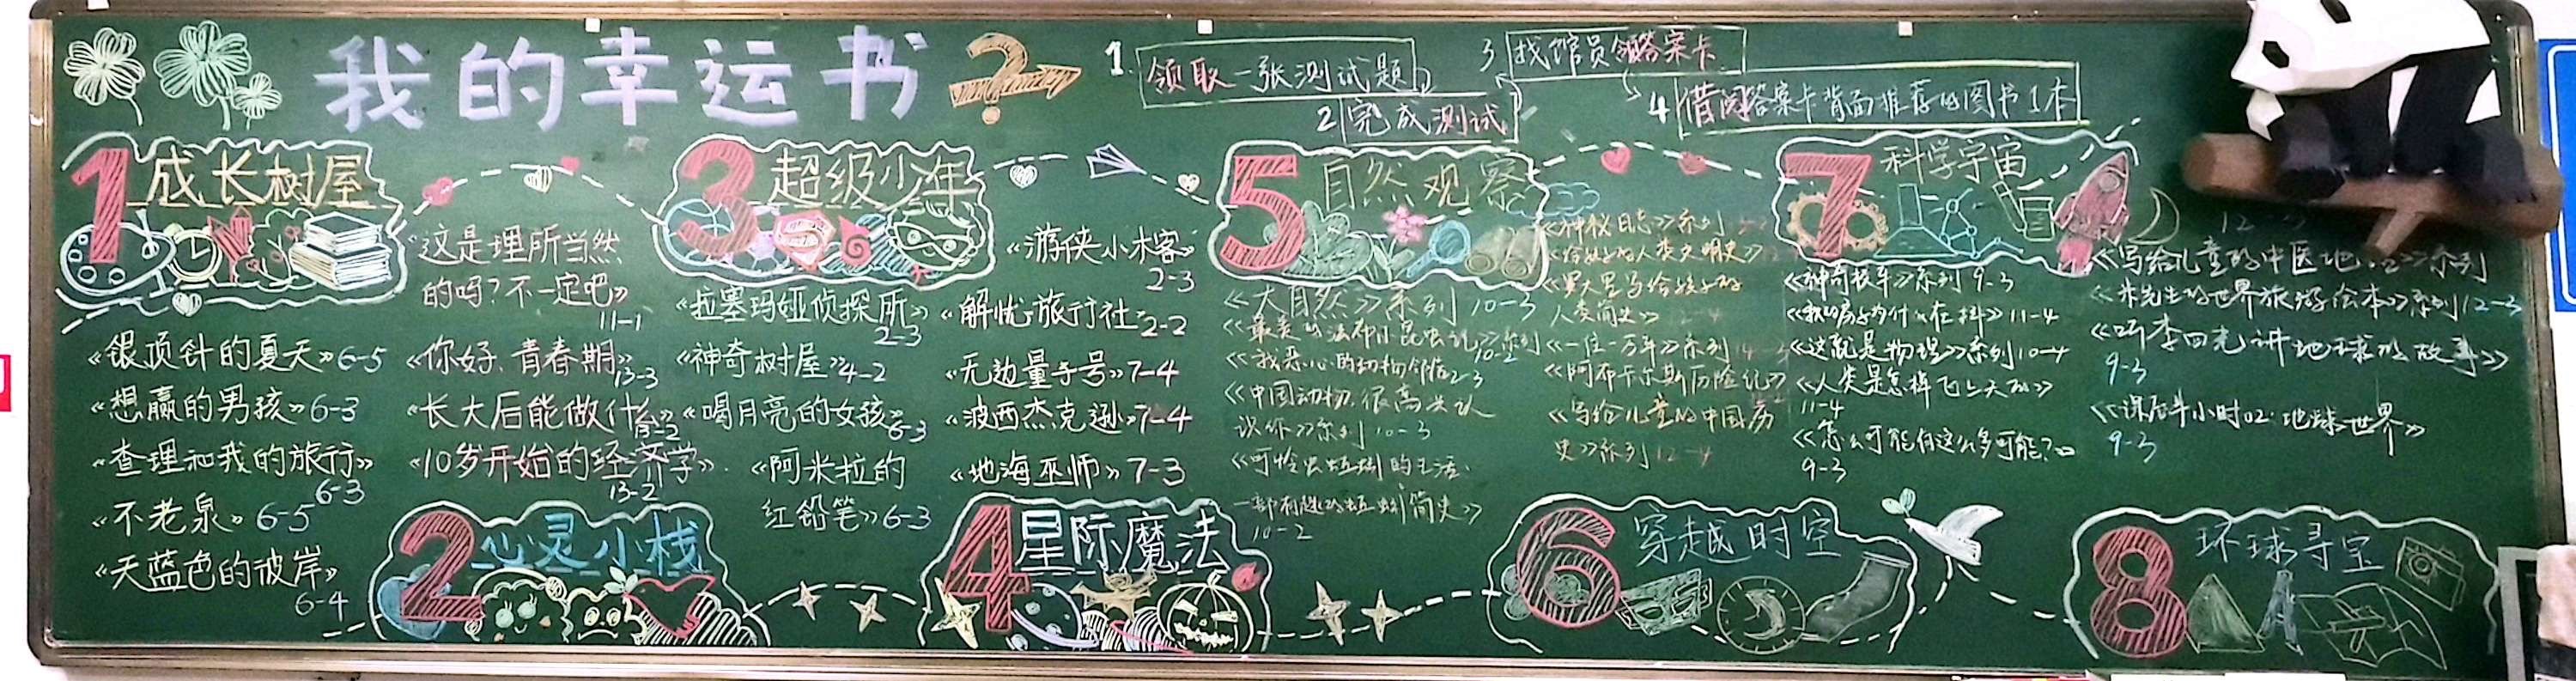 我的幸运书?
1. 领取一张测试题
2 完成测试
3 找馆员领答案卡
4 借阅答案卡背面推荐的图书1本
1 成长树屋
《银顶针的夏天》6-5
《想赢的男孩》6-3
《查理和我的旅行》
6-3
《不老泉》6-5
《天蓝色的彼岸》
6-4
2 心灵小栈
《这是理所当然
的吗?不一定吧》
11-1
《你好,青春期》
13-3
《长大后能做什么》
13-2
《10岁开始的经济学》
13-2
3 超级少年
《拉塞玛娅侦探所》
2-3
《神奇树屋》4-2
《喝月亮的女孩》
6-3
《阿米拉的
红铅笔》6-3
4 星际魔法
《游侠小木客》
2-3
《解忧旅行社》2-2
《无边量子号》7-4
《波西杰克逊》7-4
《地海巫师》7-3
5 自然观察
《大自然》系列 10-3
《最美的法布尔昆虫记》系列
10-2
《中国动物,很高兴认
识你》系列 10-3
《可怜虫蚯蚓的生活:
一部有趣的蚯蚓简史》
10-2
6 穿越时空
《神秘日志》系列
《给孩子的人类文明史》
《房龙写给孩子的
人类简史》12-4
《阿布卡尔斯历险记》
《写给儿童的中国历
史》系列 12-4
7 科学宇宙
《神奇校车》系列 9-3
《这就是物理》系列 10-4
《人类是怎样飞上天的》
11-4
《怎么可能有这么多可能?》
9-3
8 环球寻宝
《写给儿童的中国地理》系列
《米先生的世界旅游绘本》系列 12-3
《听李四光讲地球的故事》
9-3
《课后半小时02:地球世界》
9-3